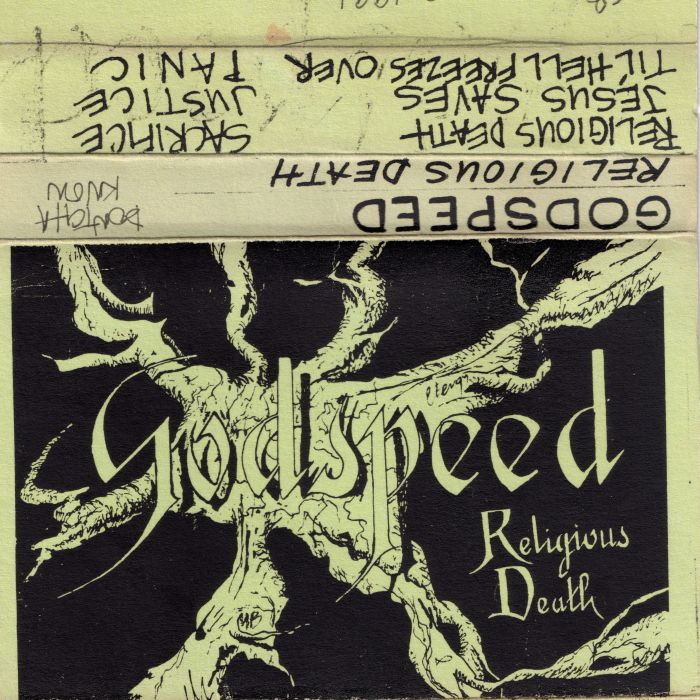 Godspeed
Religious
Death
MB
GODSPEED
RELIGIOUS DEATH
DON'TCHA
KNOW
RELIGIOUS DEATH
JESUS SAVES
TIL' HELL FREEZES OVER
SACRIFICE
JUSTICE
PANIC